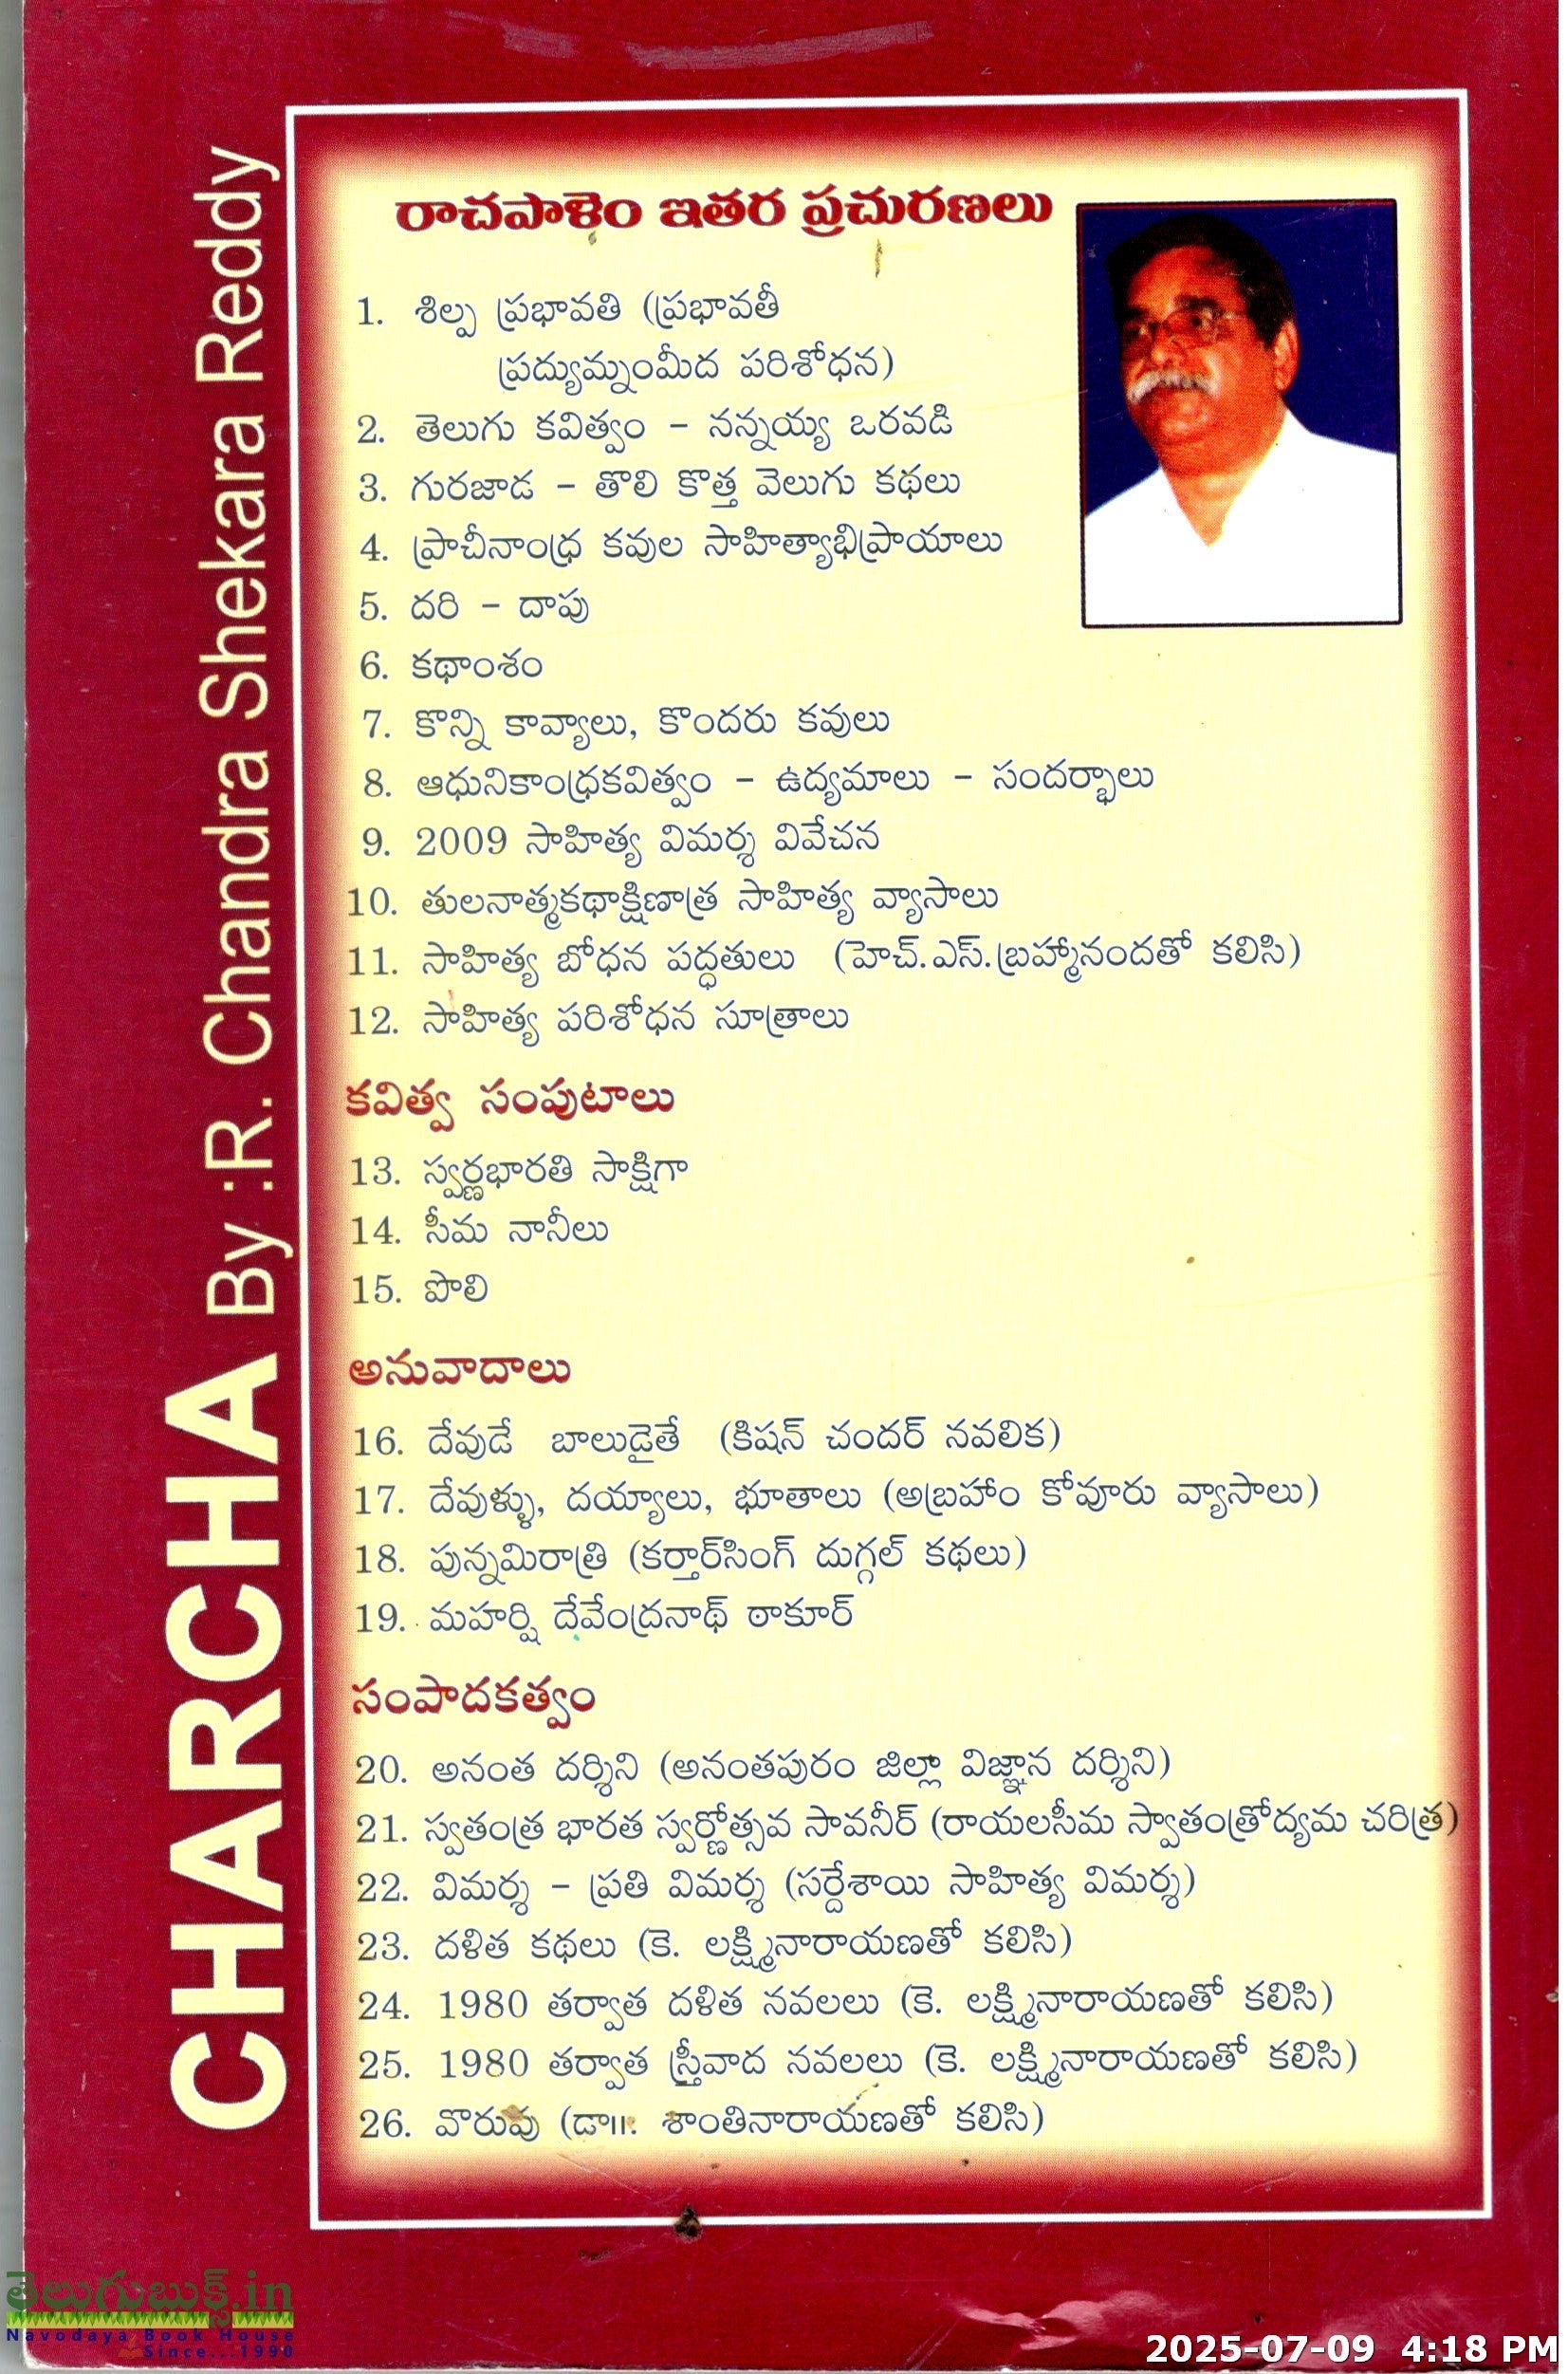 CHARCHA By :R. Chandra Shekara Reddy
రాచపాళెం ఇతర ప్రచురణలు
1. శిల్ప ప్రభావతి (ప్రభావతీ
ప్రద్యుమ్నంమీద పరిశోధన)
2. తెలుగు కవిత్వం - నన్నయ్య ఒరవడి
3. గురజాడ - తొలి కొత్త వెలుగు కథలు
4. ప్రాచీనాంధ్ర కవుల సాహిత్యాభిప్రాయాలు
5. దరి - దాపు
6. కథాంశం
7. కొన్ని కావ్యాలు, కొందరు కవులు
8. ఆధునికాంధ్రకవిత్వం - ఉద్యమాలు - సందర్భాలు
9. 2009 సాహిత్య విమర్శ వివేచన
10. తులనాత్మకథాక్షిణాత్ర సాహిత్య వ్యాసాలు
11. సాహిత్య బోధన పద్ధతులు (హెచ్.ఎస్.బ్రహ్మానందతో కలిసి)
12. సాహిత్య పరిశోధన సూత్రాలు
కవిత్వ సంపుటాలు
13. స్వర్ణభారతి సాక్షిగా
14. సీమ నానీలు
15. పొలి
అనువాదాలు
16. దేవుడే బాలుడైతే (కిషన్ చందర్ నవలిక)
17. దేవుళ్ళు, దయ్యాలు, భూతాలు (అబ్రహాం కోవూరు వ్యాసాలు)
18. పున్నమిరాత్రి (కర్తార్‌సింగ్ దుగ్గల్ కథలు)
19. మహర్షి దేవేంద్రనాథ్ ఠాకూర్
సంపాదకత్వం
20. అనంత దర్శిని (అనంతపురం జిల్లా విజ్ఞాన దర్శిని)
21. స్వతంత్ర భారత స్వర్ణోత్సవ సావనీర్ (రాయలసీమ స్వాతంత్రోద్యమ చరిత్ర)
22. విమర్శ - ప్రతి విమర్శ (సర్దేశాయి సాహిత్య విమర్శ)
23. దళిత కథలు (కె. లక్ష్మినారాయణతో కలిసి)
24. 1980 తర్వాత దళిత నవలలు (కె. లక్ష్మినారాయణతో కలిసి)
25. 1980 తర్వాత స్త్రీవాద నవలలు (కె. లక్ష్మినారాయణతో కలిసి)
26. వొరుపు (డా॥. శాంతినారాయణతో కలిసి)
తెలుగుబుక్స్.in
Navodaya Book House
Since...1990
2025-07-09 4:18 PM